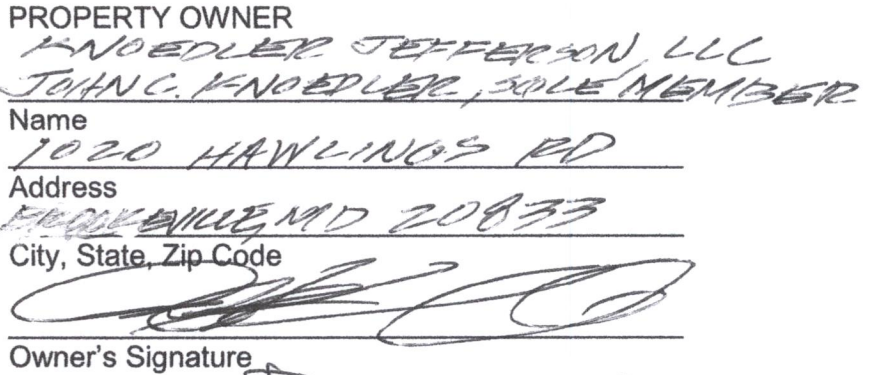 PROPERTY OWNER
KNOEDLER JEFFERSON, LLC
JOHN C. KNOEDLER, SOLE MEMBER
Name
1020 HAWLINGS RD
Address
BROOKEVILLE, MD 20833
City, State, Zip Code
Owner's Signature